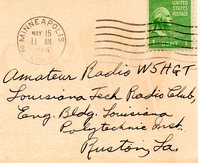 MINNEAPOLIS
MAY 15
11 AM
UNITED STATES
POSTAGE
Amateur Radio W5HGT
Louisiana Tech Radio Club,
Eng. Bldg. Louisiana
Polytechnic Inst.
Ruston, La.